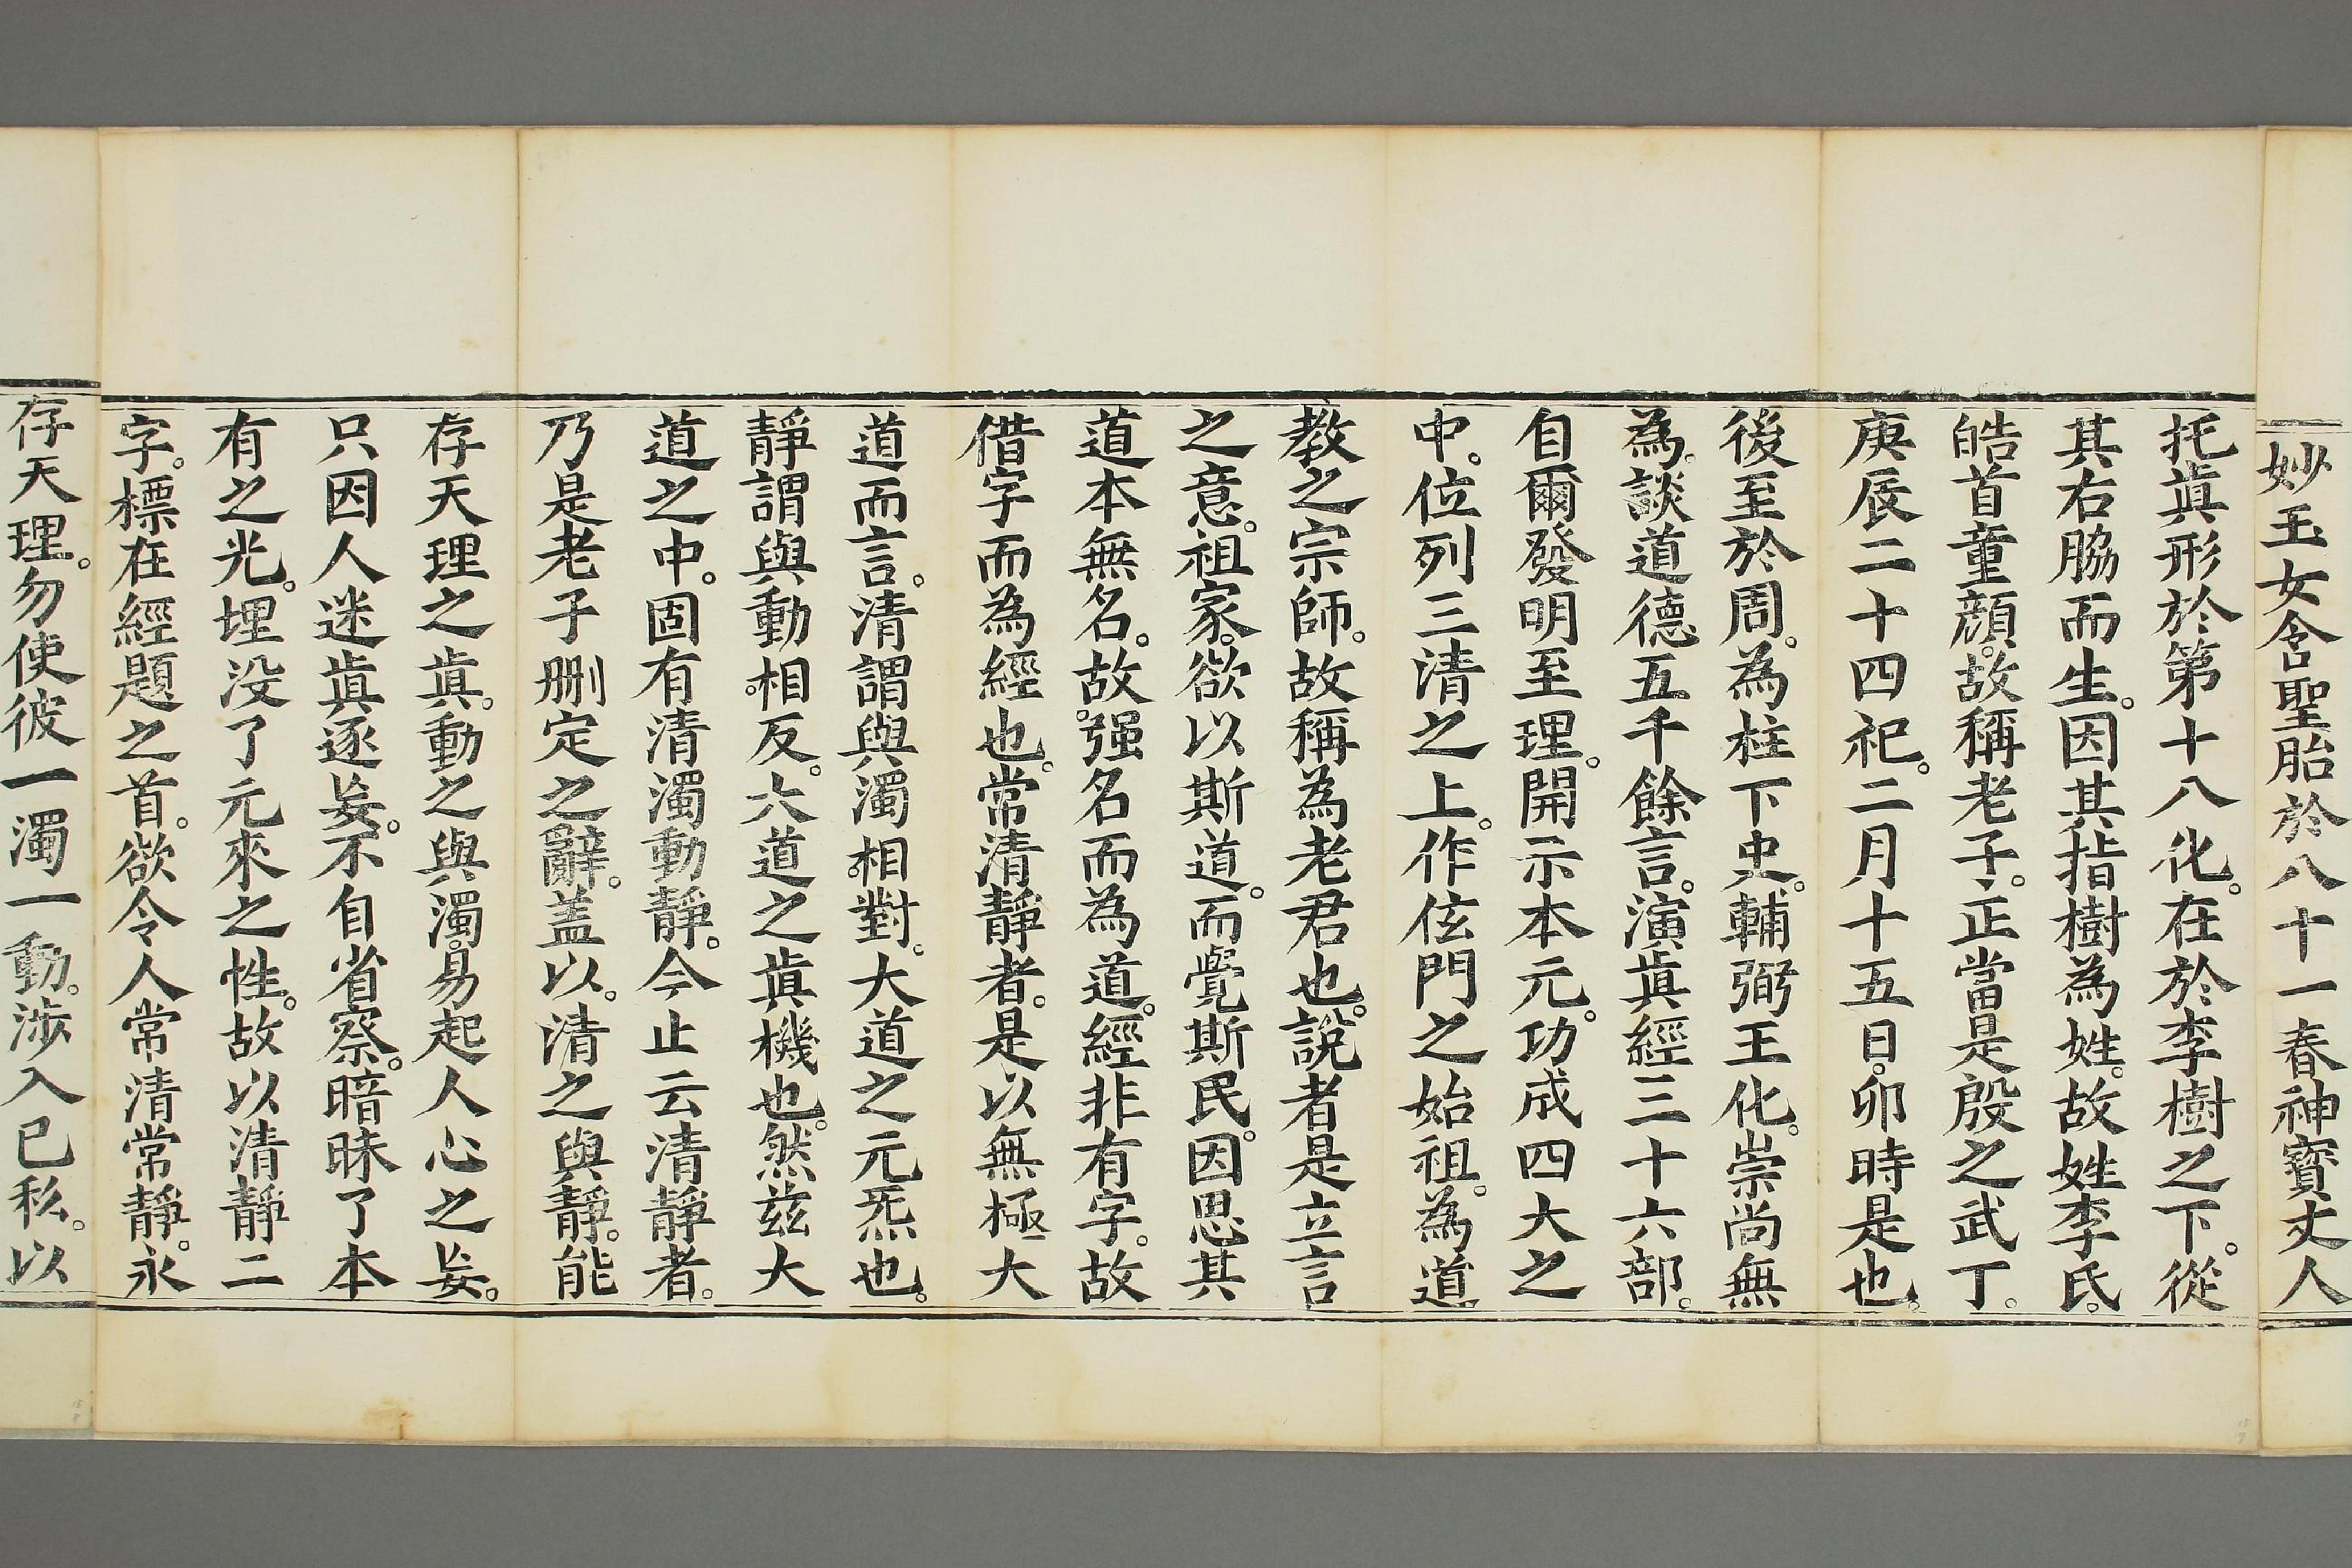 妙玉女含聖胎於八十一春神寶丈人
托眞形於第十八化。在於李樹之下。從
其右脇而生。因其指樹為姓。故姓李氏。
皓首童顔。故稱老子。正當是殷之武丁。
庚辰二十四祀。二月十五日。卯時是也。
後至於周。為柱下史。輔弼王化。崇尚無
為。談道德五千餘言。演眞經三十六部。
自爾發明至理。開示本元。功成四大之
中。位列三清之上。作伭門之始祖。為道
教之宗師。故稱為老君也。說者是立言
之意。祖家。欲以斯道。而覺斯民。因思其
道本無名。故。强名而為道。經非有字。故
借字而為經也。常清靜者。是以無極大
道而言。清謂與濁相。對。大道之元炁也。
靜謂與動。相反。大道之眞機也。然兹大
道之中。固有清濁動靜。今止云清靜者。
乃是老子删定之辭。盖以。清之與靜。能
存天理之眞。動之與濁。易起人心之妄。
只因人迷眞逐妄。不自省察。暗昧了本
有之光。埋没了元來之性。故以清靜二
字。標在經題之首。欲令人常清常靜。永
存天理。勿使彼一濁一動。涉入已私。以